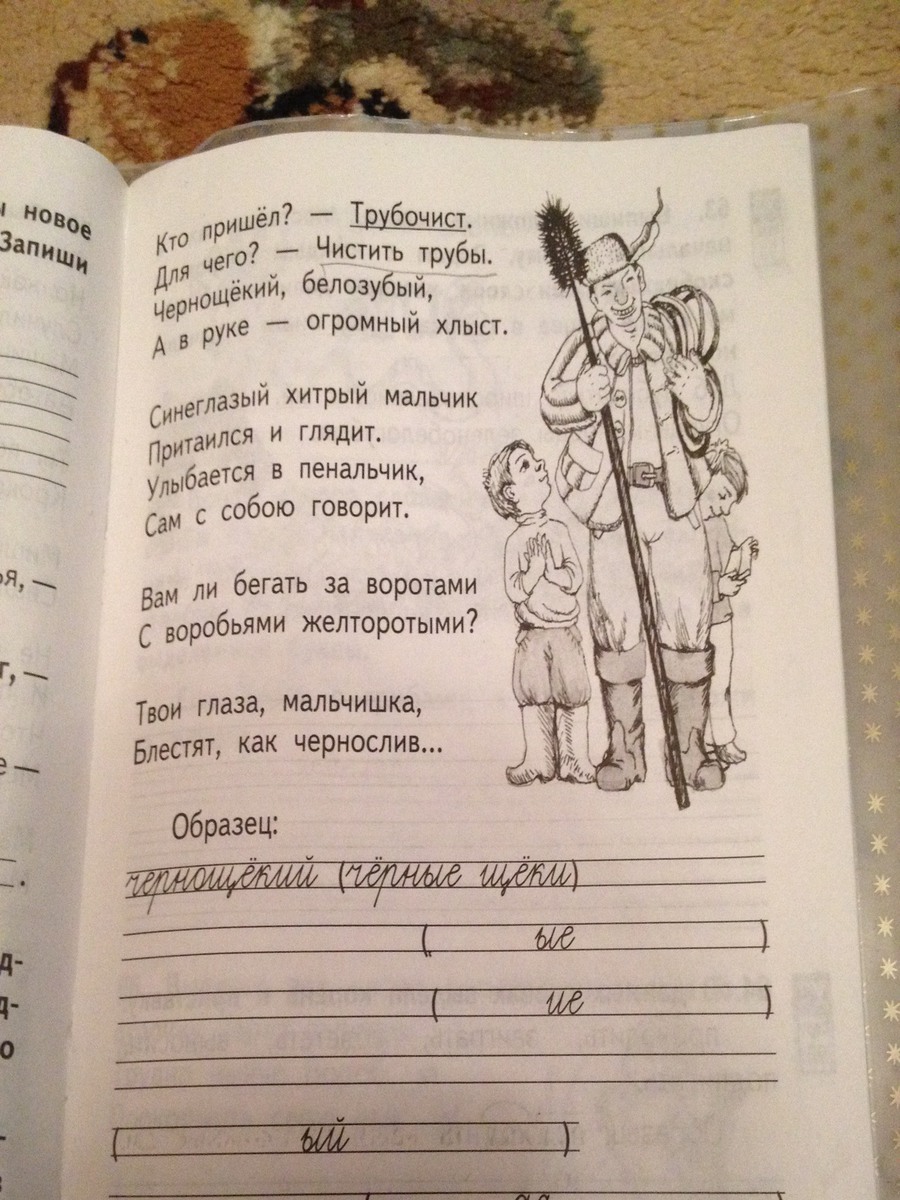 ы новое
Запиши
ья, —
т, —
е —
.
д-
д-
о
Кто пришёл? — Трубочист.
Для чего? — Чистить трубы.
Чернощёкий, белозубый,
А в руке — огромный хлыст.
Синеглазый хитрый мальчик
Притаился и глядит.
Улыбается в пенальчик,
Сам с собою говорит.
Вам ли бегать за воротами
С воробьями желторотыми?
Твои глаза, мальчишка,
Блестят, как чернослив...
Образец:
чернощёкий (чёрные щёки)
( ые )
( ие )
( ый )